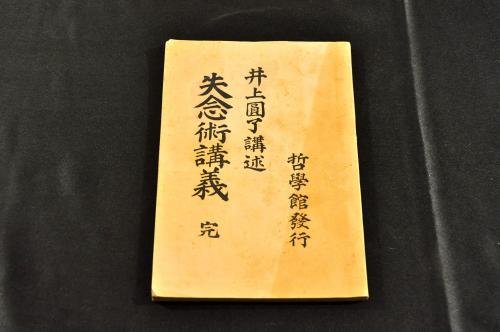 哲學館發行
井上圓了講述
失念術講義 完